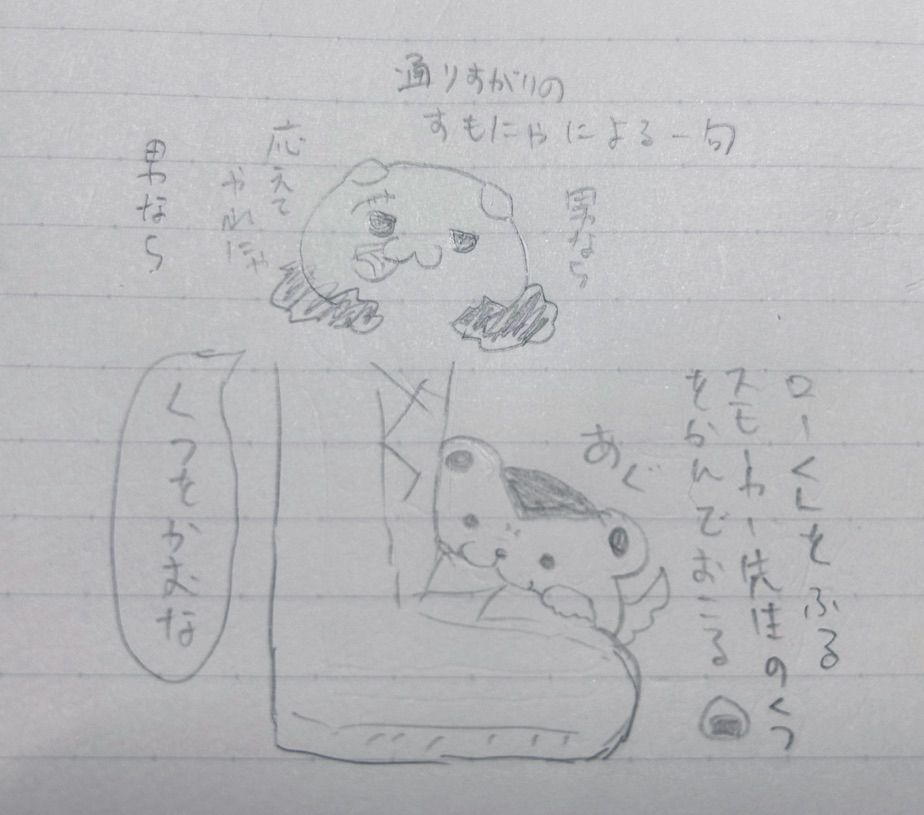 通りすがりの
すもにゃによる一句
男なら
応えて
やれにゃ
男なら
ローくんをふる
スモやー先生のくつ
をかんでおこる
あぐ
くつをかむな